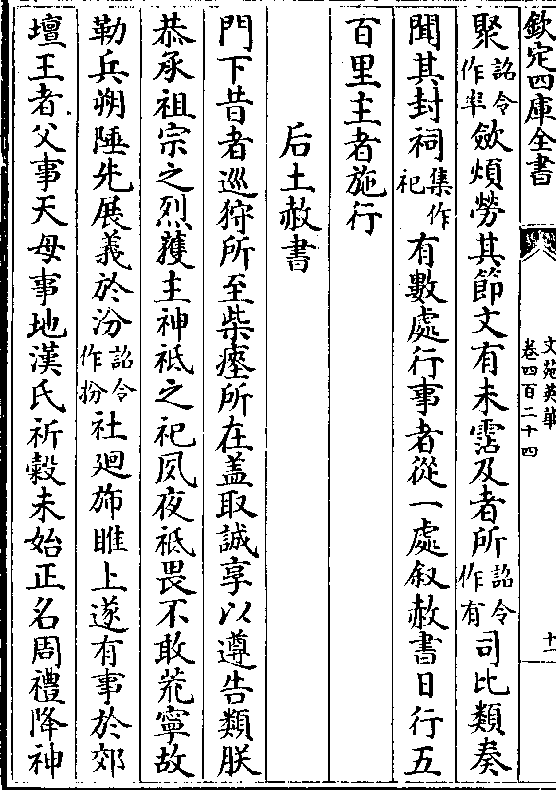 欽定四庫全書
文苑英華
卷四百二十四
十一
聚詔令作率斂煩勞其節文有未霑及者所詔令作有司比類奏
聞其封祠集作祀有數處行事者從一處叙赦書日行五
百里主者施行
后土赦書
門下昔者巡狩所至柴瘞所在盖取誠享以遵告類朕
恭承祖宗之烈䕶主神祗之祀夙夜祗畏不敢荒寧故
勒兵朔陲先展義於汾詔令作扮社廻斾睢上遂有事於郊
壇王者父事天母事地漢氏祈穀未始正名周禮降神